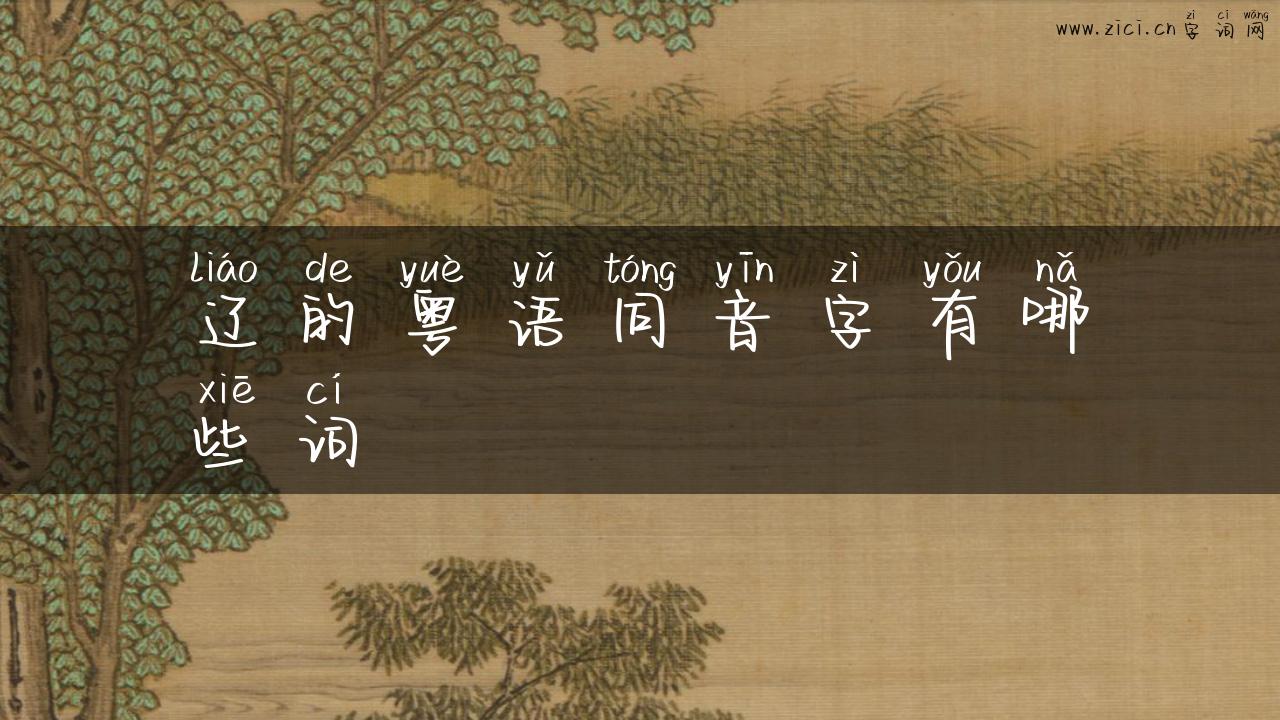 zì cí wǎng
www.zici.cn 字词网
liáo de yuè yǔ tóng yīn zì yǒu nǎ
辽的粤语同音字有哪
xiē cí
些词